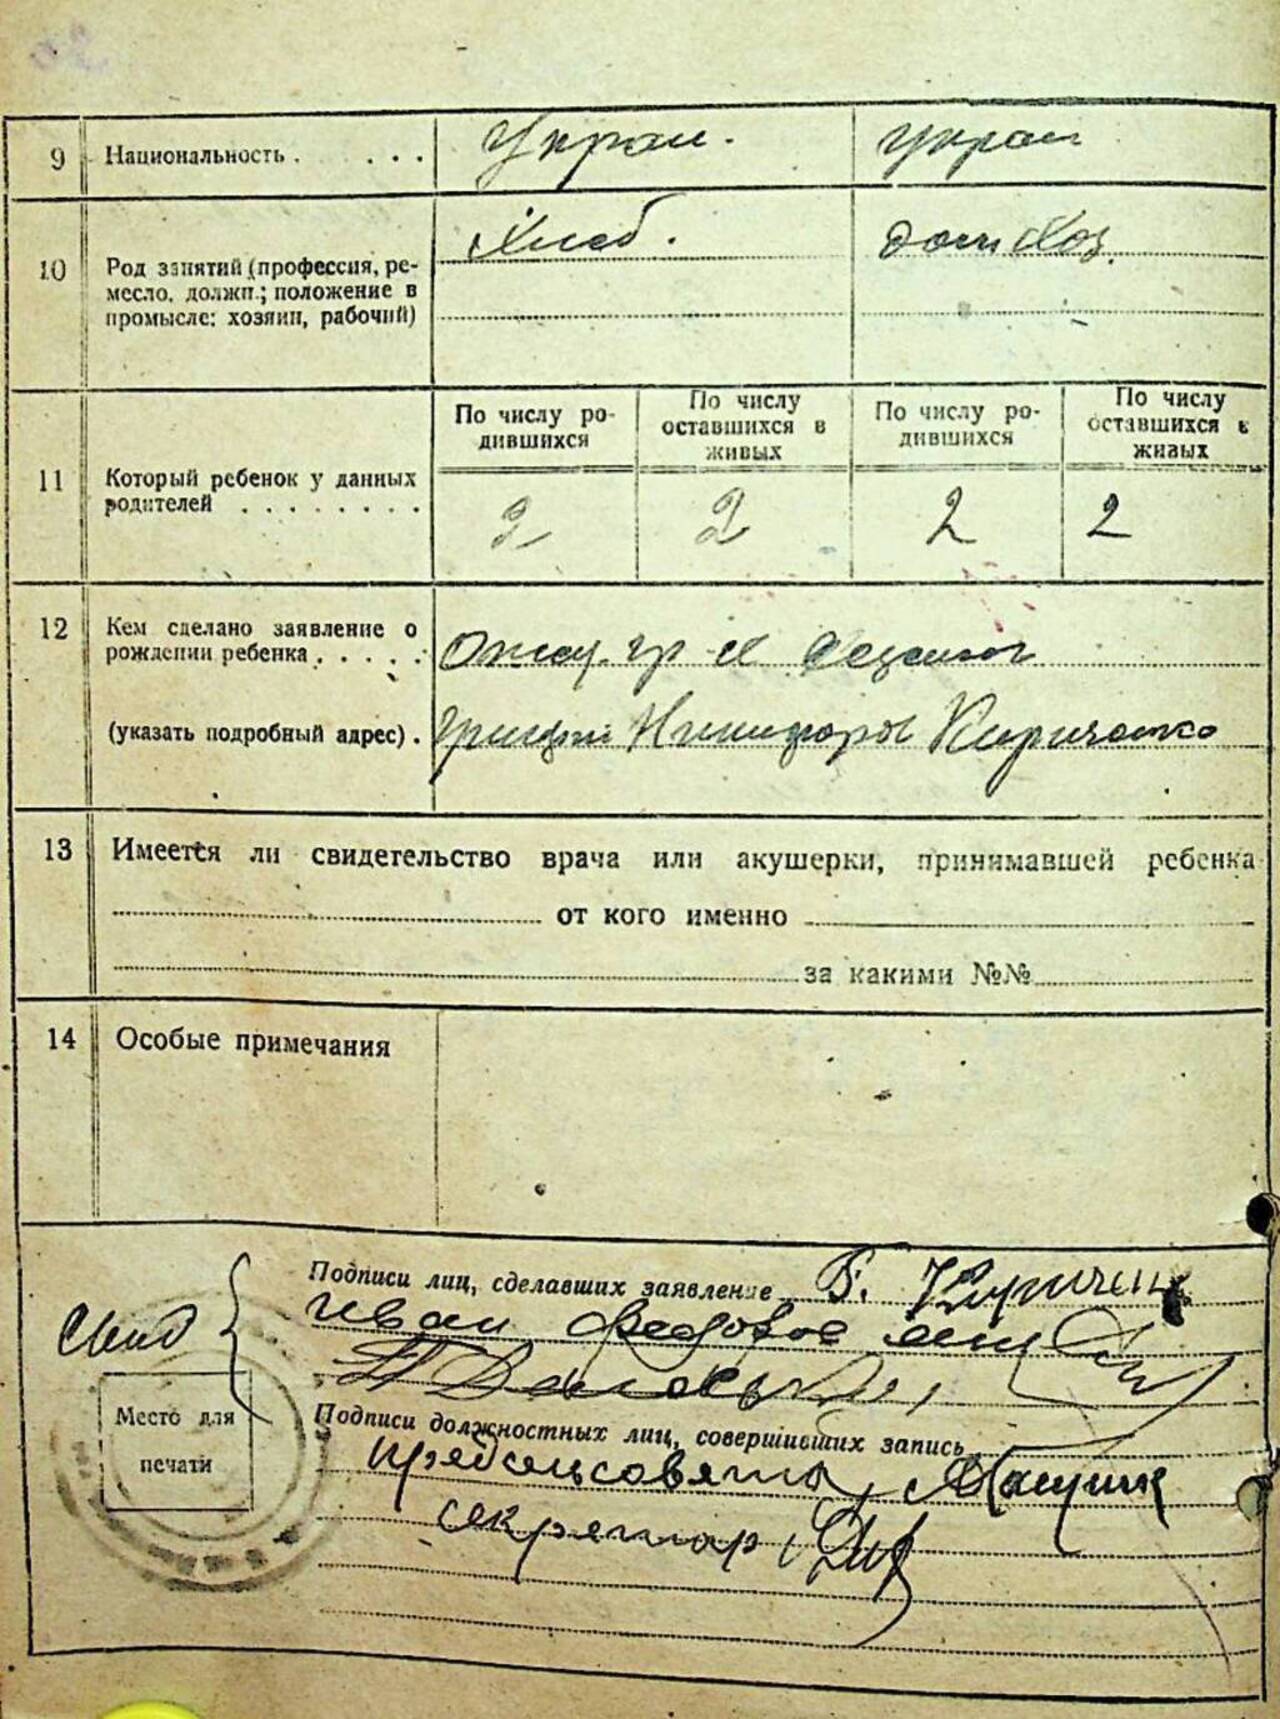 9 Национальность . . . . Украи. украи
10 Род занятий (профессия, ре-
месло, должн.; положение в
промысле: хозяин, рабочий)
Хлеб. дом хоз.
По числу ро-
дившихся
По числу
оставшихся в
живых
По числу ро-
дившихся
По числу
оставшихся в
живых
11 Который ребенок у данных
родителей . . . . . . . .
2 2 2 2
12 Кем сделано заявление о
рождении ребенка . . . . .
Отец. гр с
(указать подробный адрес) .
Никифоров Кириченко
13 Имеется ли свидетельство врача или акушерки, принимавшей ребенка
от кого именно
за какими №№
14 Особые примечания
Подписи лиц, сделавших заявление Г. Кириченк
Иван Федоров
Место для
печати
Подписи должностных лиц, совершивших запись
секретар